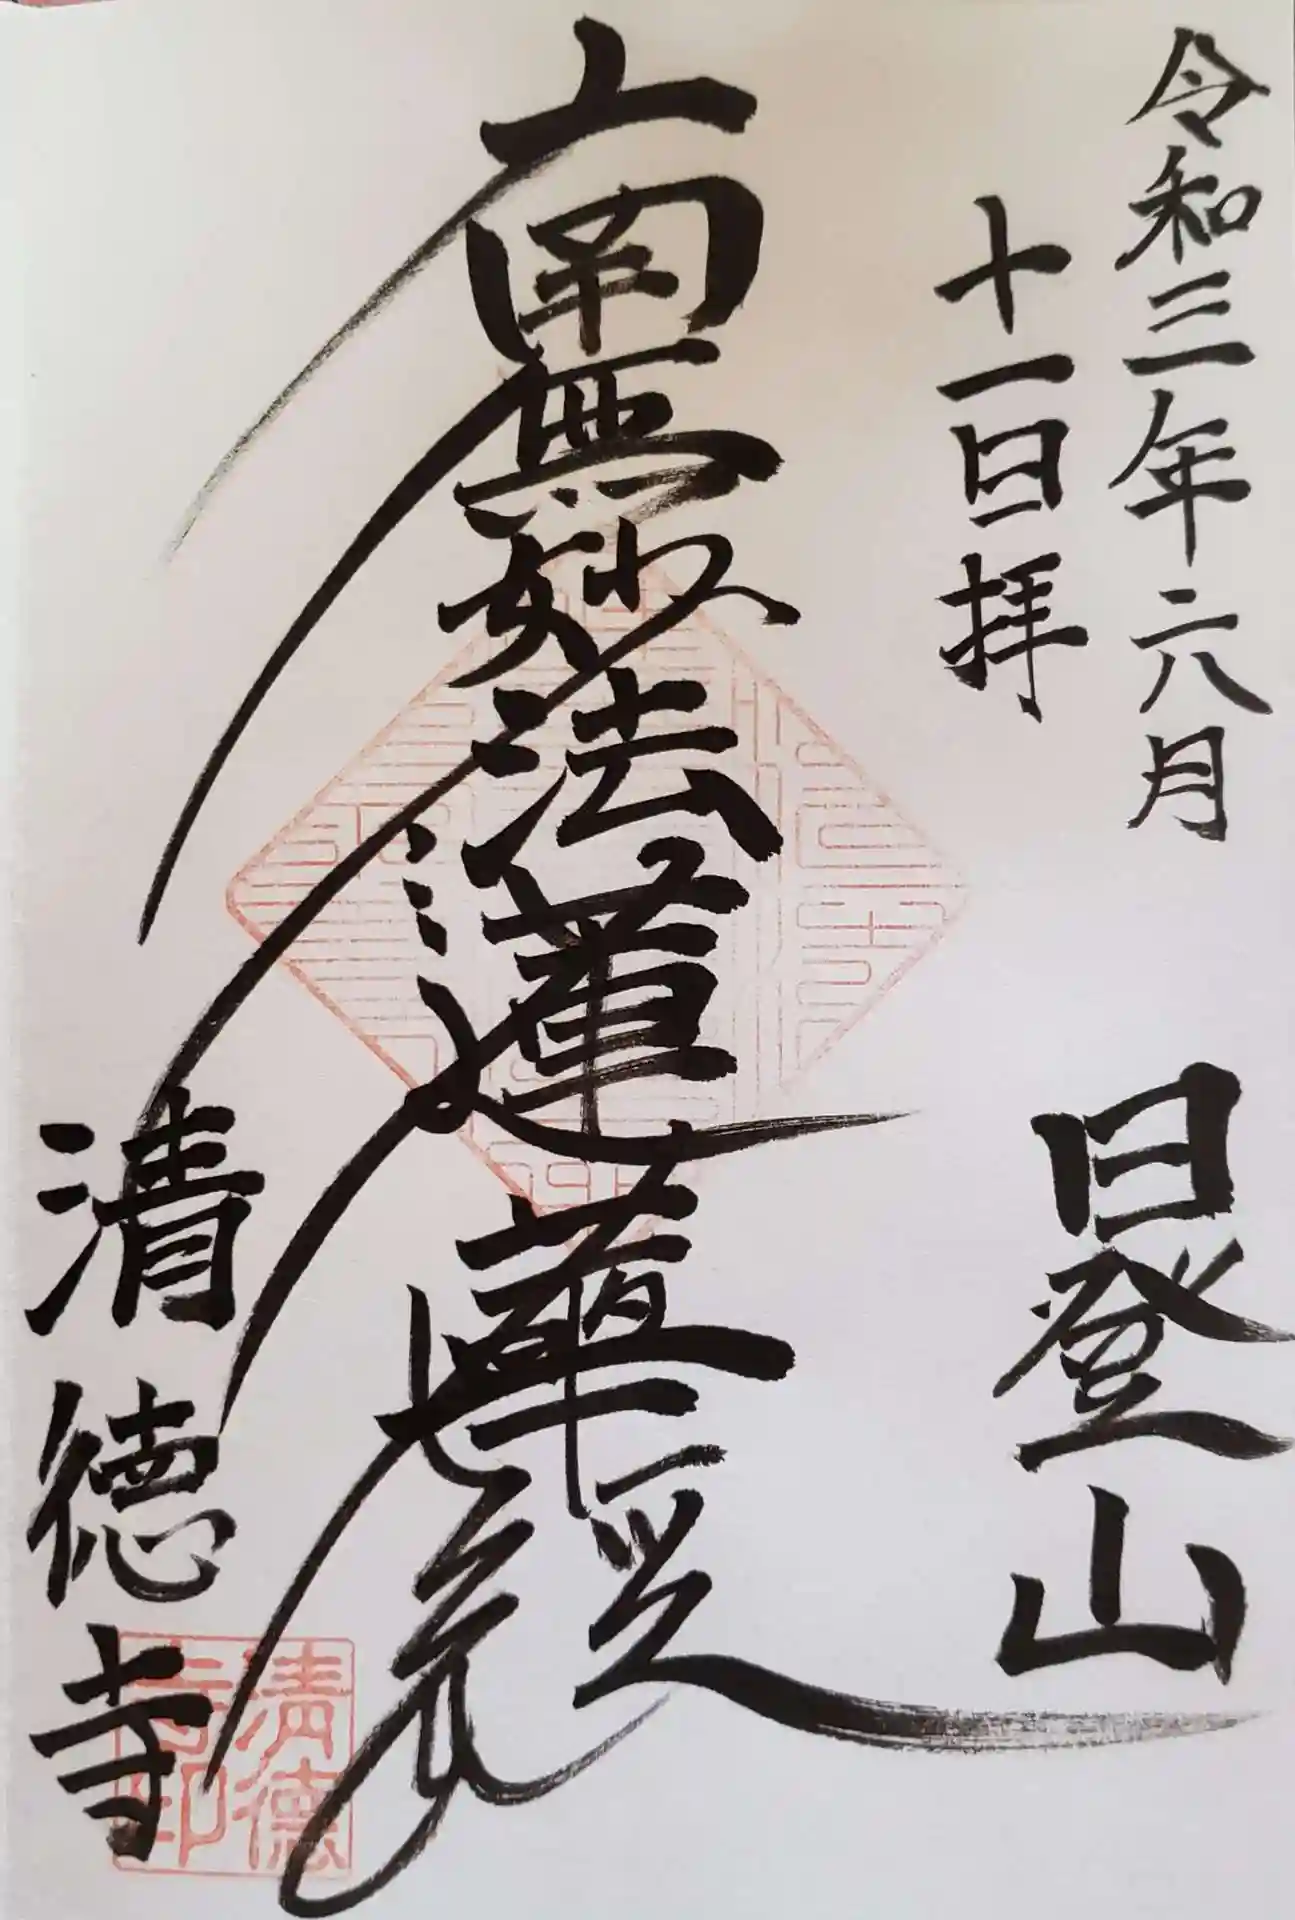 令和三年六月
十一日拝
日登山
南無妙法蓮華経
清徳寺
清徳
寺印